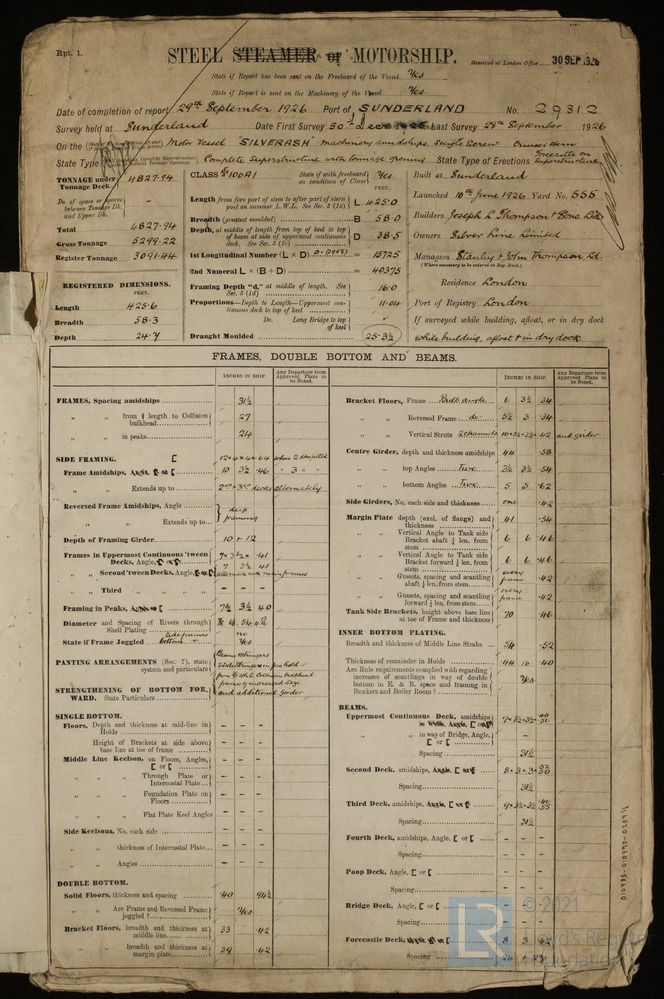 Rpt. 1.
STEEL STEAMER or MOTORSHIP.
Received at London Office 30 SEP 1926
State if Report has been sent on the Freeboard of the Vessel Yes
State if Report is sent on the Machinery of the Vessel Yes
Date of completion of report 29th September 1926 Port of SUNDERLAND No. 29312
Survey held at Sunderland Date First Survey 30th Last Survey 28th September 1926
On the Motor Vessel "SILVERASH" Machinery amidships. Single Screw Cruiser Stern
State Type Complete Superstructure with tonnage opening State Type of Erections Forecastle on Superstructure
TONNAGE under Tonnage Deck 4827.94
Do. of space or spaces between Tonnage Dk. and Upper Dk. –
Total 4827.94
Gross Tonnage 5299.22
Register Tonnage 3091.44
REGISTERED DIMENSIONS.
FEET.
Length 425.6
Breadth 58.3
Depth 24.7
CLASS 100A1 State if with freeboard as condition of Class Yes
FEET.
Length from fore part of stem to after part of stern post on summer L.W.L. See Sec. 3 (1a) L 425.0
Breadth (greatest moulded) B 58.0
Depth, at middle of length from top of keel to top of beam at side of uppermost continuous deck. See Sec. 3 (1c) D 38.5
1st Longitudinal Number (L × D) = 15725
2nd Numeral L × (B + D) = 40375
Framing Depth "d," at middle of length. See Sec. 3 (1d) 16.0
Proportions—Depth to Length—Uppermost continuous deck to top of keel 11.04
Do. Long Bridge to top of keel
Draught Moulded 25.3½
Built at Sunderland
Launched 10th June 1926 Yard No. 555
Builders Joseph L. Thompson & Sons Ltd
Owners Silver Line Limited
Managers Stanley & John Thompson Ld.
(Where necessary to be entered in Reg. Book.)
Residence London
Port of Registry London
If surveyed while building, afloat, or in dry dock
while building, afloat & in dry dock
FRAMES, DOUBLE BOTTOM AND BEAMS.
INCHES IN SHIP. Any Departure from Approved Plans to be Noted.
FRAMES, Spacing amidships 31½
" " from ⅕ length to Collision bulkhead 27
" " in peaks 24
SIDE FRAMING.
Frame Amidships, 10 3½ .46
" " Extends up to 2nd & 3rd decks alternately
Reversed Frame Amidships, Angle deep framing
" " Extends up to
Depth of Framing Girder 10 & 12
Frames in Uppermost Continuous 'tween Decks, Angle,
" " Second 'tween Decks, Angle, 7 3½ .41
" " Third " "
Framing in Peaks, 7½ 3½ .40
Diameter and Spacing of Rivets through Shell Plating
State if Frame Joggled Yes
PANTING ARRANGEMENTS (Sec. 7), state system and particulars
STRENGTHENING OF BOTTOM FORWARD. State Particulars and additional girder
SINGLE BOTTOM.
Floors, Depth and thickness at mid-line in Holds – – –
Height of Brackets at side above base line at toe of frame – – –
Middle Line Keelson, on Floors, Angles, [ or [ – – –
" " Through Plate or Intercostal Plate – – –
" " Foundation Plate on Floors – – –
" " Flat Plate Keel Angles – – –
Side Keelsons, No. each side – – –
" " thickness of Intercostal Plate – – –
" " Angles – – –
DOUBLE BOTTOM.
Solid Floors, thickness and spacing .40 94½
" " Are Frame and Reversed Frame joggled? Yes
Bracket Floors, breadth and thickness at middle line 33 .42
" " breadth and thickness at margin plate 39 .42
INCHES IN SHIP. Any Departure from Approved Plans to be Noted.
Bracket Floors, Frame Bulb angle 6 3½ .34
" " Reversed Frame do. 5½ 3 .34
" " Vertical Struts 2 channels 10 × 3½ × 3½ .42 and girder
Centre Girder, depth and thickness amidships 44 .58
" " top Angles Two 3½ 3½ .54
" " bottom Angles Two 5 5 .62
Side Girders, No. each side and thickness one .42
Margin Plate depth (excl. of flange) and thickness 41 .54
" " Vertical Angle to Tank side Bracket abaft ¼ len. from stem 6 6 .46
" " Vertical Angle to Tank side Bracket forward ¼ len. from stem 6 6 .46
" " Gussets, spacing and scantling abaft ¼ len. from stem every frame .42
" " Gussets, spacing and scantling forward ¼ len. from stem every frame .42
Tank Side Brackets, height above base line at toe of Frame and thickness 70 .46
INNER BOTTOM PLATING.
Breadth and thickness of Middle Line Strake 54 .52
Thickness of remainder in Holds .44 to .40
Are Rule requirements complied with regarding increases of scantlings in way of double bottom in E. & B. space and framing in Bunkers and Boiler Room? Yes
BEAMS.
Uppermost Continuous Deck, amidships
" " in way of Bridge, Angle, [ or [ –
Spacing 31½
Second Deck, amidships, Angle, [ or [ 8 × 3 × 3
Spacing 31½
Third Deck, amidships, Angle, [ or [ 9 × 3½ × 3½
Spacing 31½
Fourth Deck, amidships, Angle, [ or [ – – –
Spacing – – –
Poop Deck, Angle, [ or [ – – –
Spacing – – –
Bridge Deck, Angle, [ or [ – – –
Spacing – – –
Forecastle Deck, 8 3 .42
Spacing
010983-010990-0287½
LR
© 2021
Lloyd's Register
Foundation